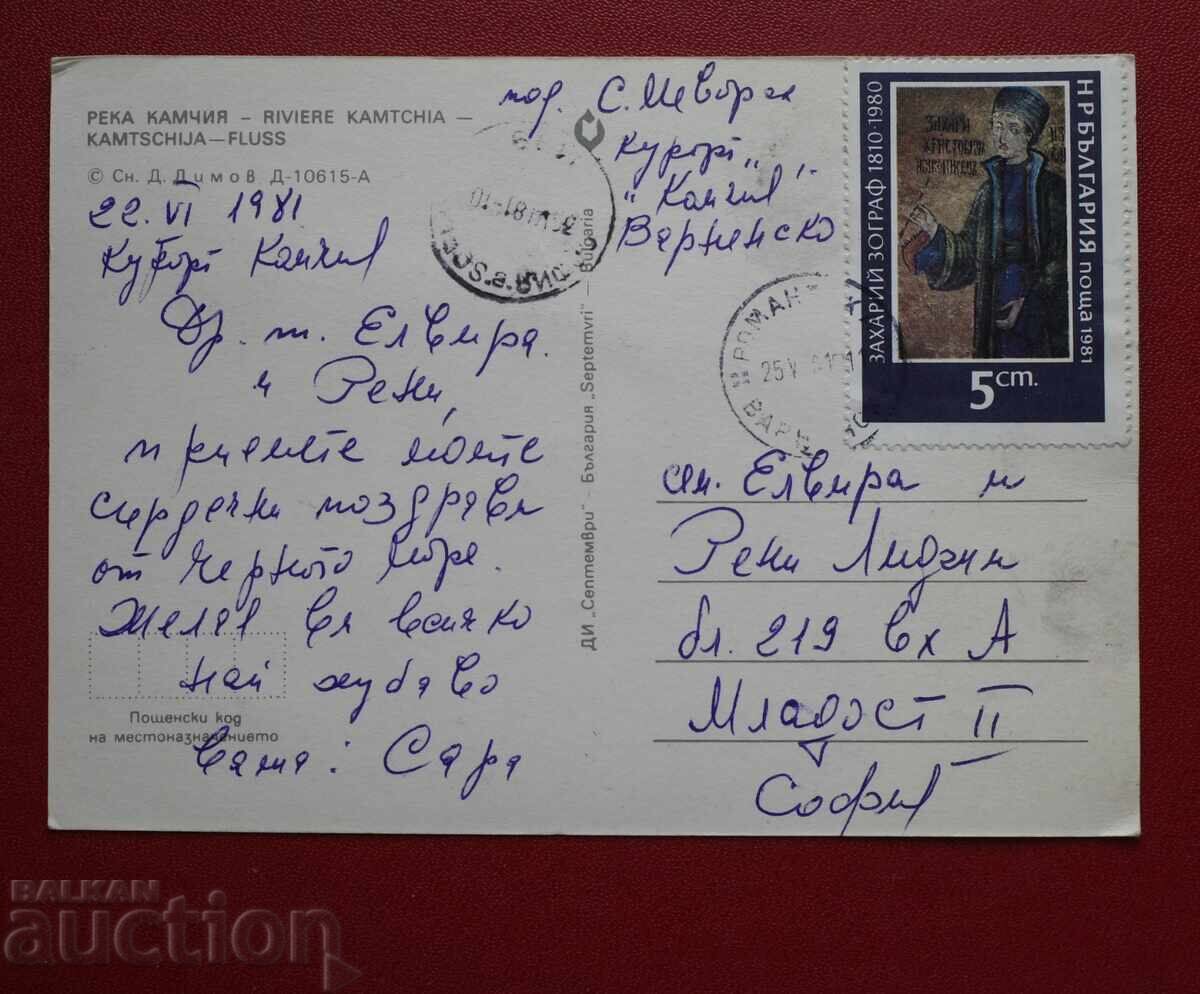 РЕКА КАМЧИЯ – RIVIERE KAMTCHIA –
KAMTSCHIJA—FLUSS
© Сн. Д. Димов Д-10615-А
22. VI 1981
Курорт Камчия
Др. т. Елвира
и Рени,
приемете моите
сърдечни поздрави
от Черното море.
Желая Ви всичко
най хубаво
Ваша: Сара
Пощенски код
на местоназначението
ДИ „Септември" - България „Septemvri" — Bulgaria
под. С.
Курорт „
„Камчия"
Варненско
НР БЪЛГАРИЯ поща 1981
ЗАХАРИЙ ЗОГРАФ 1810·1980
5 ст.
ЗАХАРИ
РОМАН
25 V
ВАРН
сем. Елвира и
Рени Лиджи
бл. 219 вх А
Младост II
София
BALKAN
auction